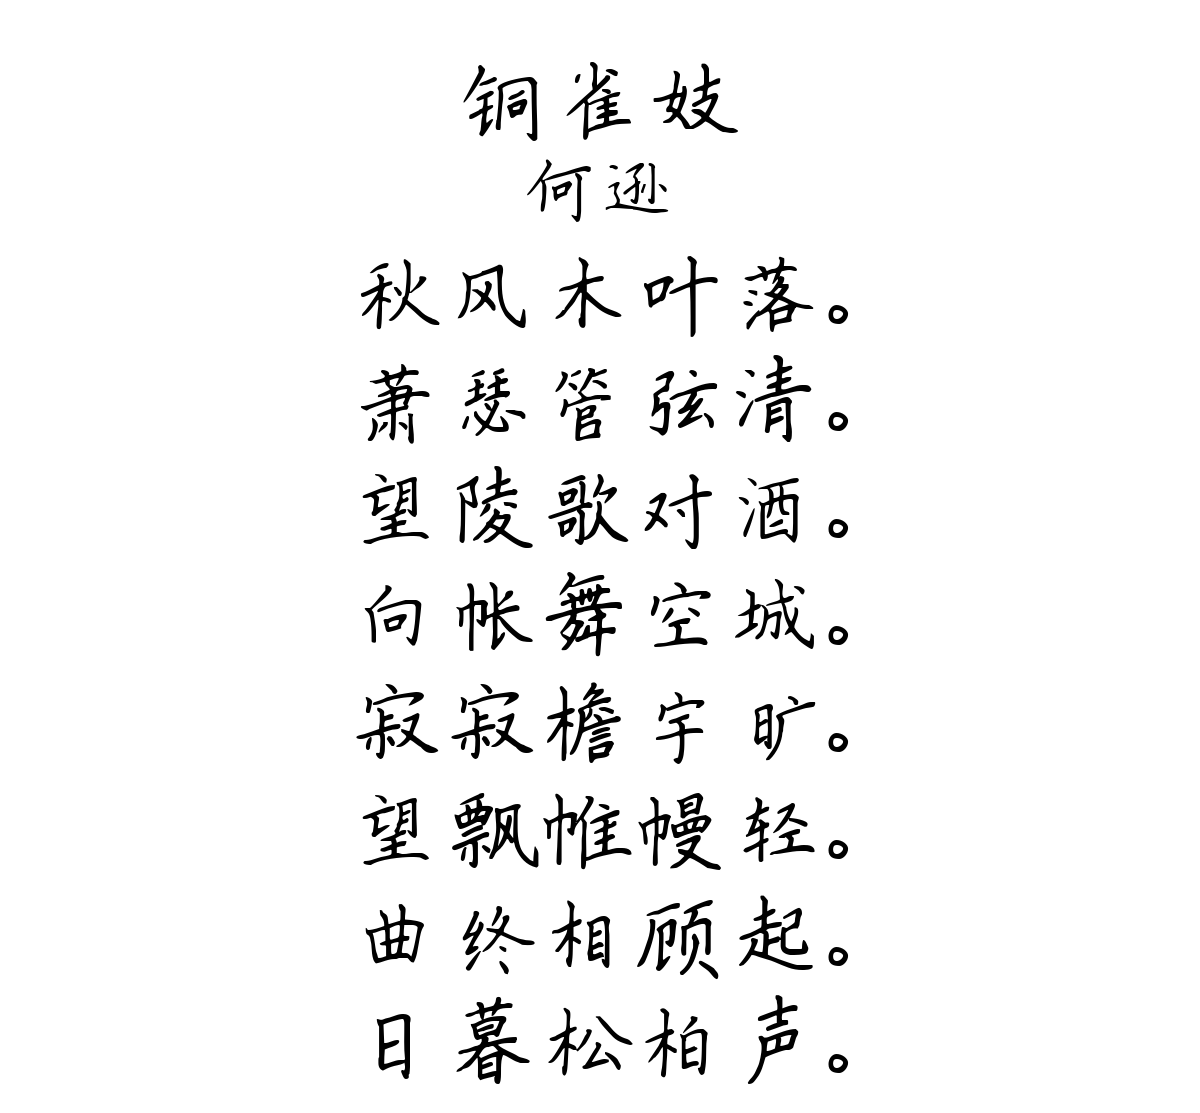 铜雀妓
何逊
秋风木叶落。
萧瑟管弦清。
望陵歌对酒。
向帐舞空城。
寂寂檐宇旷。
望飘帷幔轻。
曲终相顾起。
日暮松柏声。